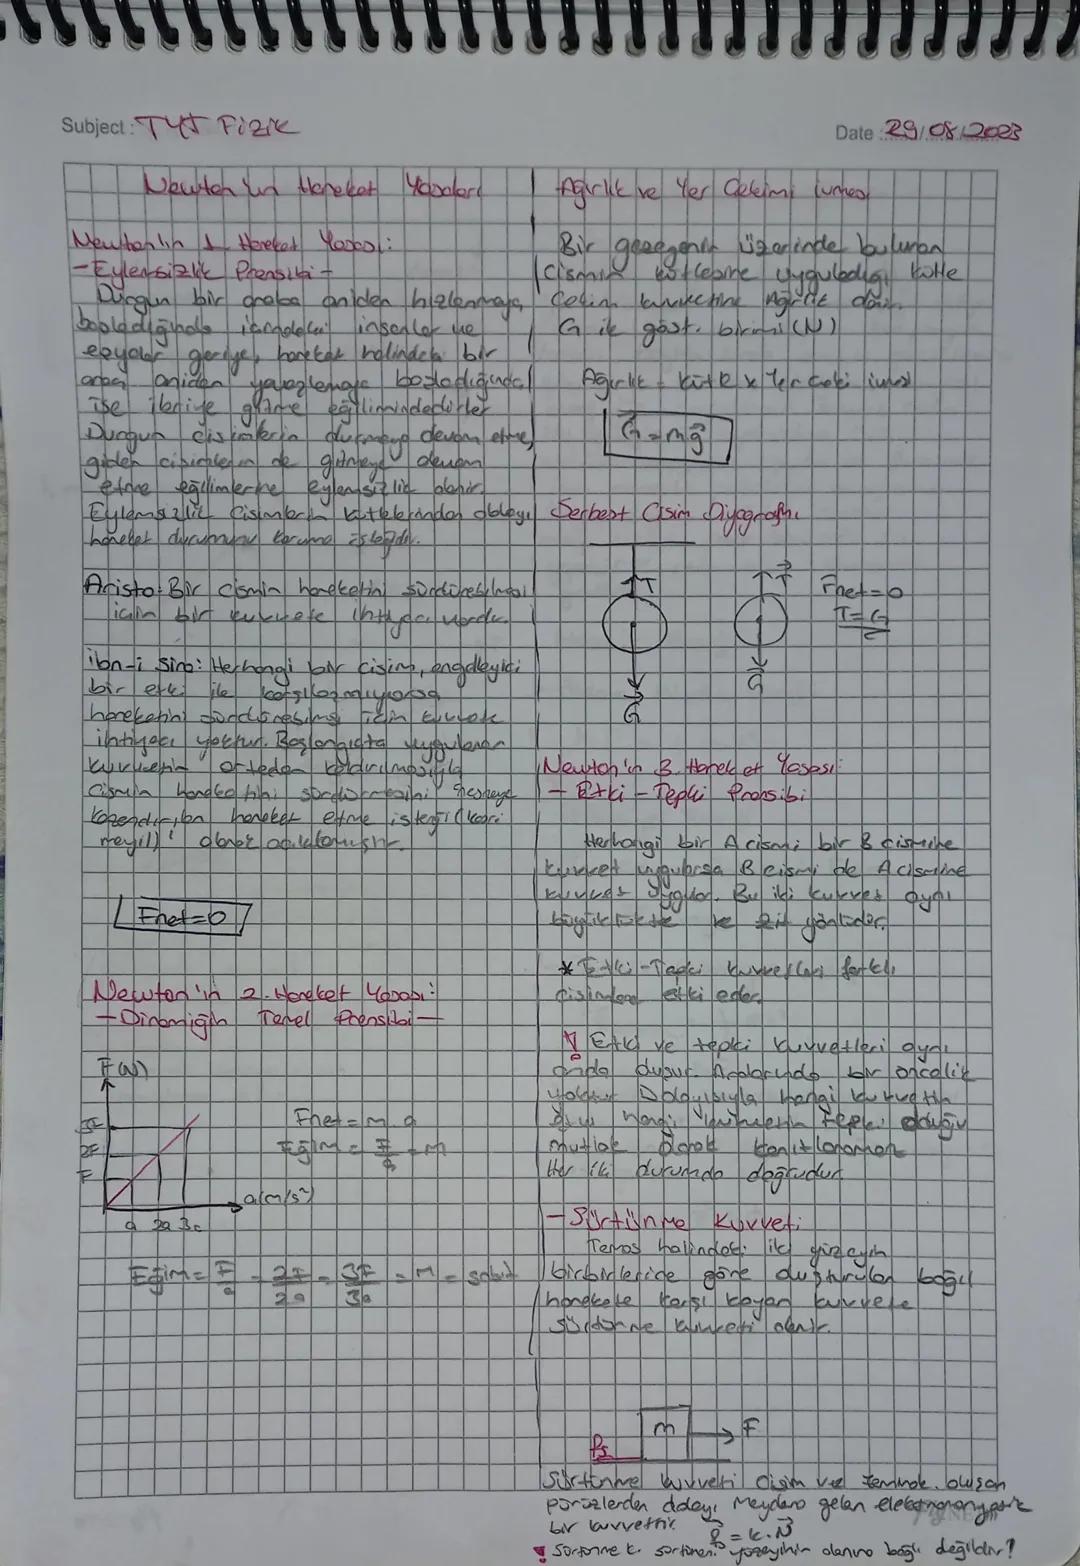 Subject: TYT Fizik
Date: 29/08/2023
Newton'un Hareket Yasaları
Newton'un 1. Hareket Yasası:
- Eylemsizlik Prensibi -
Durgun bir araba aniden hızlanmaya
başladığında içindeki insanlar ve
eşyalar geriye, hareket halinde bir
araba aniden yavaşlamaya başladığında
ise ileriye gitme eğilimindedirler
Durgun cisimlerin durmaya devam etme,
giden cisimlerin de gitmeye devam
etme eğilimlerine eylemsizlik denir.
Eylemsizlik cisimlerin kütlelerinden dolayı
hareket durumunu koruma isteğidir.
Aristo: Bir cismin hareketini sürdürebilmesi
için bir kuvvete ihtiyacı vardır.
ibn-i Sina: Herhangi bir cisim, engelleyici
bir etki ile karşılaşmıyorsa
hareketini sürdürebilmesi için kuvvete
ihtiyacı yoktur. Başlangıçta uygulanan
kuvvetin ortadan kaldırılmasıyla
cismin hareketini sürdürmesini
kazandırılan hareket etme isteği (kasri
meyil)' olarak açıklamıştır.
Fnet=0
Newton'in 2. Hareket Yasası:
- Dinamiğin Temel Prensibi -
F(N)
3F
2F
F
a 2a 3a
a(m/s²)
Fnet = m.a
Eğim = F/a = m
Eğim = F/a = 2F/2a = 3F/3a = m = sabit
Ağırlık ve Yer Çekimi İvmesi
Bir gezegenin üzerinde bulunan
cismin kütlesine uyguladığı kütle
çekim kuvvetine Ağırlık denir.
G ile göst. birimi (N)
Ağırlık = kütle x Yer çeki ivmesi
G = mg
Serbest Cisim Diyagramı
T
G
T
G
Fnet=0
T=G
Newton'in 3. Hareket Yasası:
- Etki - Tepki Prensibi
Herhangi bir A cismi bir B cismine
kuvvet uygularsa B cismi de A cismine
kuvvet uygular. Bu iki kuvvet aynı
büyüklükte ve zıt yönlüdür.
* Etki - Tepki kuvvetleri farklı
cisimlere etki eder.
! Etki ve tepki kuvvetleri aynı
anda oluşur. Aralarında bir öncelik
yoktur Dolayısıyla hangi kuvvetin
etki hangi kuvvetin tepki olduğu
mutlak olarak kanıtlanamaz
Her iki durumda doğrudur.
- Sürtünme Kuvveti
Temas halindeki iki yüzeyin
birbirlerine göre oluşturulan bağıl
harekete karşı koyan kuvvete
sürtünme kuvveti denir.
m
F
fs
Sürtünme kuvveti cisim ve zeminde oluşan
pürüzlerden dolayı meydana gelen elektromanyetik
bir kuvvettir. fs = k.N
! Sürtünme k. sürtünen yüzeyinin alanına bağlı değildir!